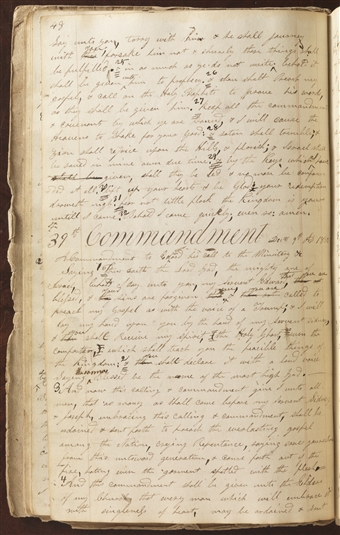 48
Say unto you, tarry with him & he shall journey
with you forsake him not & surely these things shall
be fulfilled & in as much as ye do not write behold it
shall be given him to prophecy & thou shalt preach my
gospel & call on the Holy Prophets to prove his words
as they shall be given him 27 Keep all the commandments
& covenants by which ye are bound & I will cause the
Heavens to shake for your good & Satan shall tremble &
Zion shall rejoice upon the Hills & flourish & Israel shall
be saved in mine own due time & by the keys which I have
given shall they be led & no more be confounded
at all Lift up your hearts & be glad your redemption
draweth nigh fear not little flock the Kingdom is yours
untill I come Behold I come quickly even so amen
39th Commandment Dec 9th AD 1830
A commandment to Edward his call to the Ministry &c
Saying Thus saith the Lord God, the mighty one of
Israel, behold I say unto you my servant Edward that you are
blessed & your sins are forgiven & you are called to
preach my Gospel as with the voice of a Trump & I will
lay my hand upon you by the hand of my servant Sidney
& you shall receive my spirit the Holy Ghost even the
comforter which shall teach you the peaceible things of
the Kingdom & you shall declare it with a loud voice
saying Hosanna blessed be the name of the most high God
3 And now this calling & commandment give I unto all
men that as many as shall come before my servent Sidney
& Joseph embracing this calling & commandment, shall be
ordained & sent forth to preach the everlasting gospel
among the Nation, crying Repentance, saying save yourselves
from this untoward generation, & come forth out of the
fire, hateing even the garment spotted with the flesh
4 And this commandment shall be given unto the Elders
of my Church that every man which will embrace it
with singleness of heart, may be ordained & sent